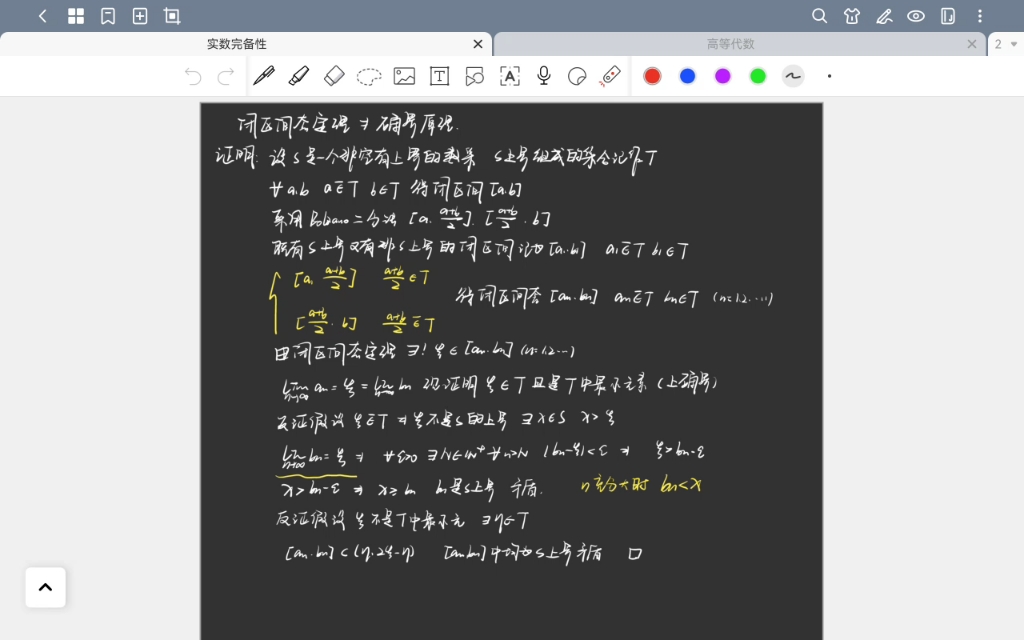 实数完备性
高等代数
2
闭区间套定理 ⇒ 确界原理.
证明: 设 S 是一个非空有上界的数集 S上界组成的集合记作T
∀ a,b a∈̄T b∈T 得闭区间 [a,b]
采用 Bolzano 二分法 [a, (a+b)/2]. [(a+b)/2, b]
既有S上界又有非S上界的闭区间记为 [a₁,b₁] a₁∈̄T b₁∈T
[a, (a+b)/2] (a+b)/2 ∈T
得闭区间套 [an,bn] an∈̄T bn∈T (n=1,2,...)
[(a+b)/2, b] (a+b)/2 ∈̄T
由闭区间套定理 ∃! ξ∈[an,bn] (n=1,2...)
lim n→∞ an = ξ = lim n→∞ bn 现证明 ξ∈T 且是T中最小元素 (上确界)
反证假设 ξ∈̄T ⇒ ξ不是S的上界 ∃x∈S x>ξ
lim n→∞ bn=ξ ⇒ ∀ε>0 ∃N∈ℕ⁺ ∀n>N |bn-ξ|<ε ⇒ ξ>bn-ε
x>bn-ε ⇒ x≥bn bn是S上界 矛盾. n充分大时 bn<x
反证假设 ξ不是T中最小元 ∃η∈T
[an,bn]⊂(η,2ξ-η) [an,bn]中均为S上界矛盾 □